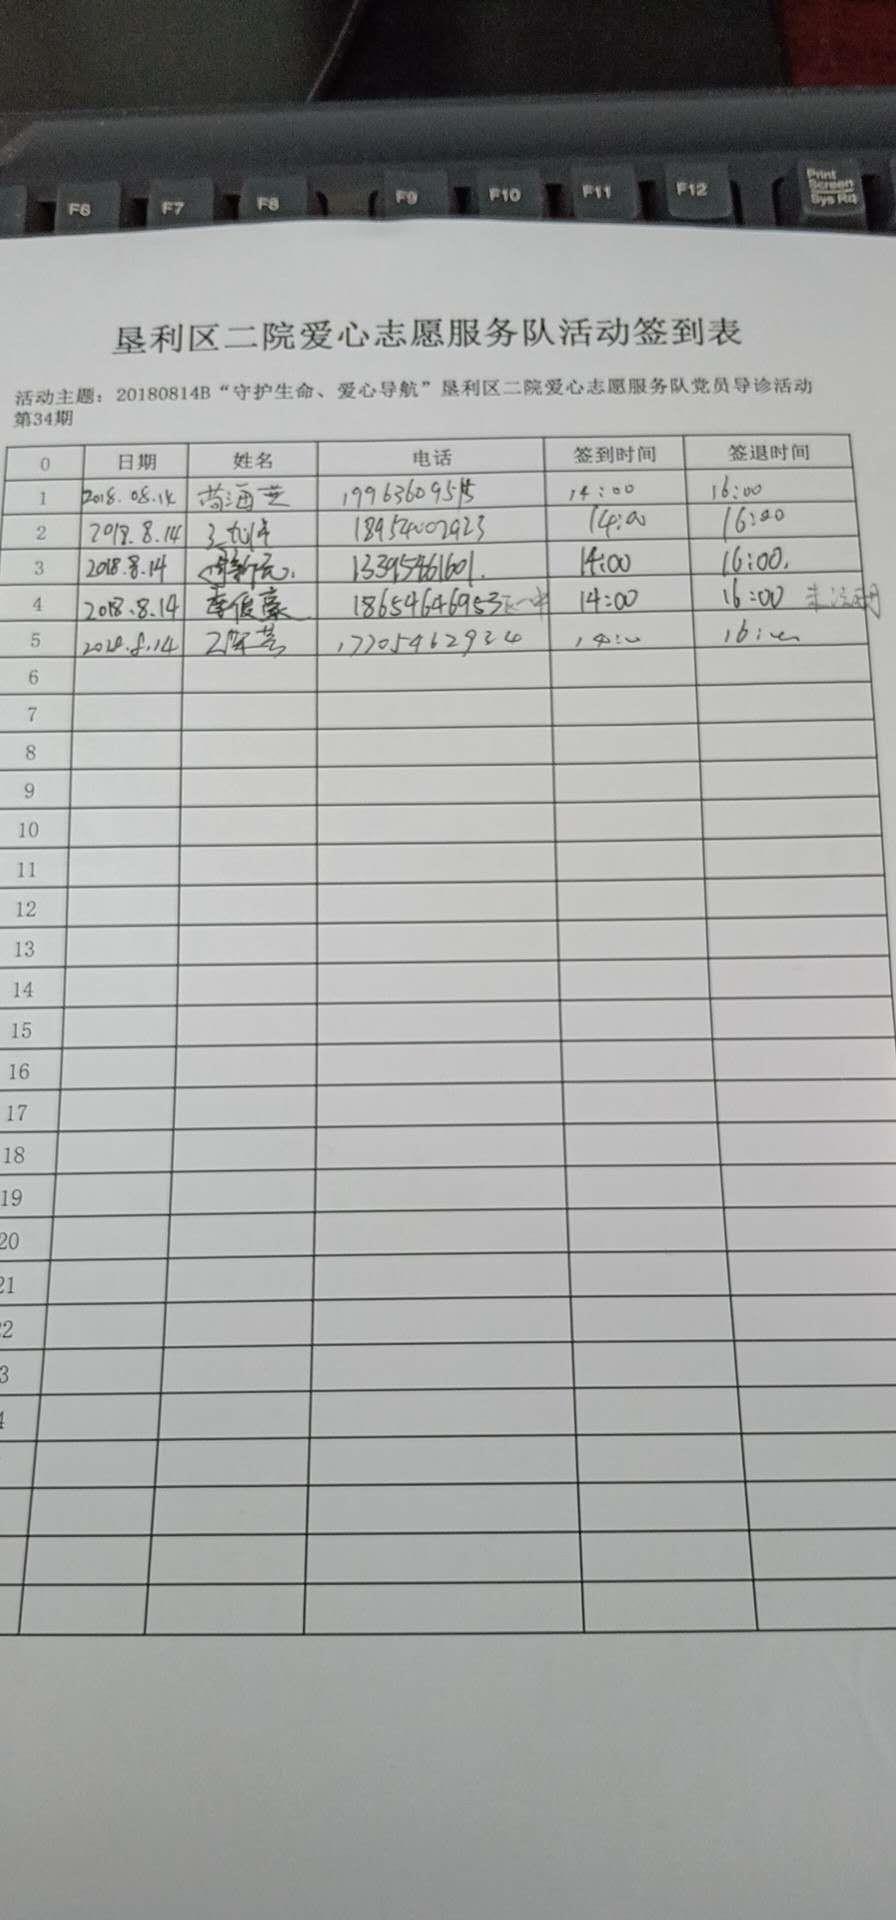 F6 F7 F8 F9 F10 F11 F12 Print Screen Sys Rq
垦利区二院爱心志愿服务队活动签到表
活动主题：20180814B“守护生命、爱心导航”垦利区二院爱心志愿服务队党员导诊活动
第34期
0 日期 姓名 电话 签到时间 签退时间
1 2018.08.14 14:00 16:00
2 2018.8.14 18954002923 14:00 16:00
3 2018.8.14 13395461601. 14:00 16:00.
4 2018.8.14 李俊豪 18654646953 14:00 16:00 未注册
5 2018.8.14 17705462934 14:00 16:00
6
7
8
9
10
11
12
13
14
15
16
17
18
19
20
21
22
3
4